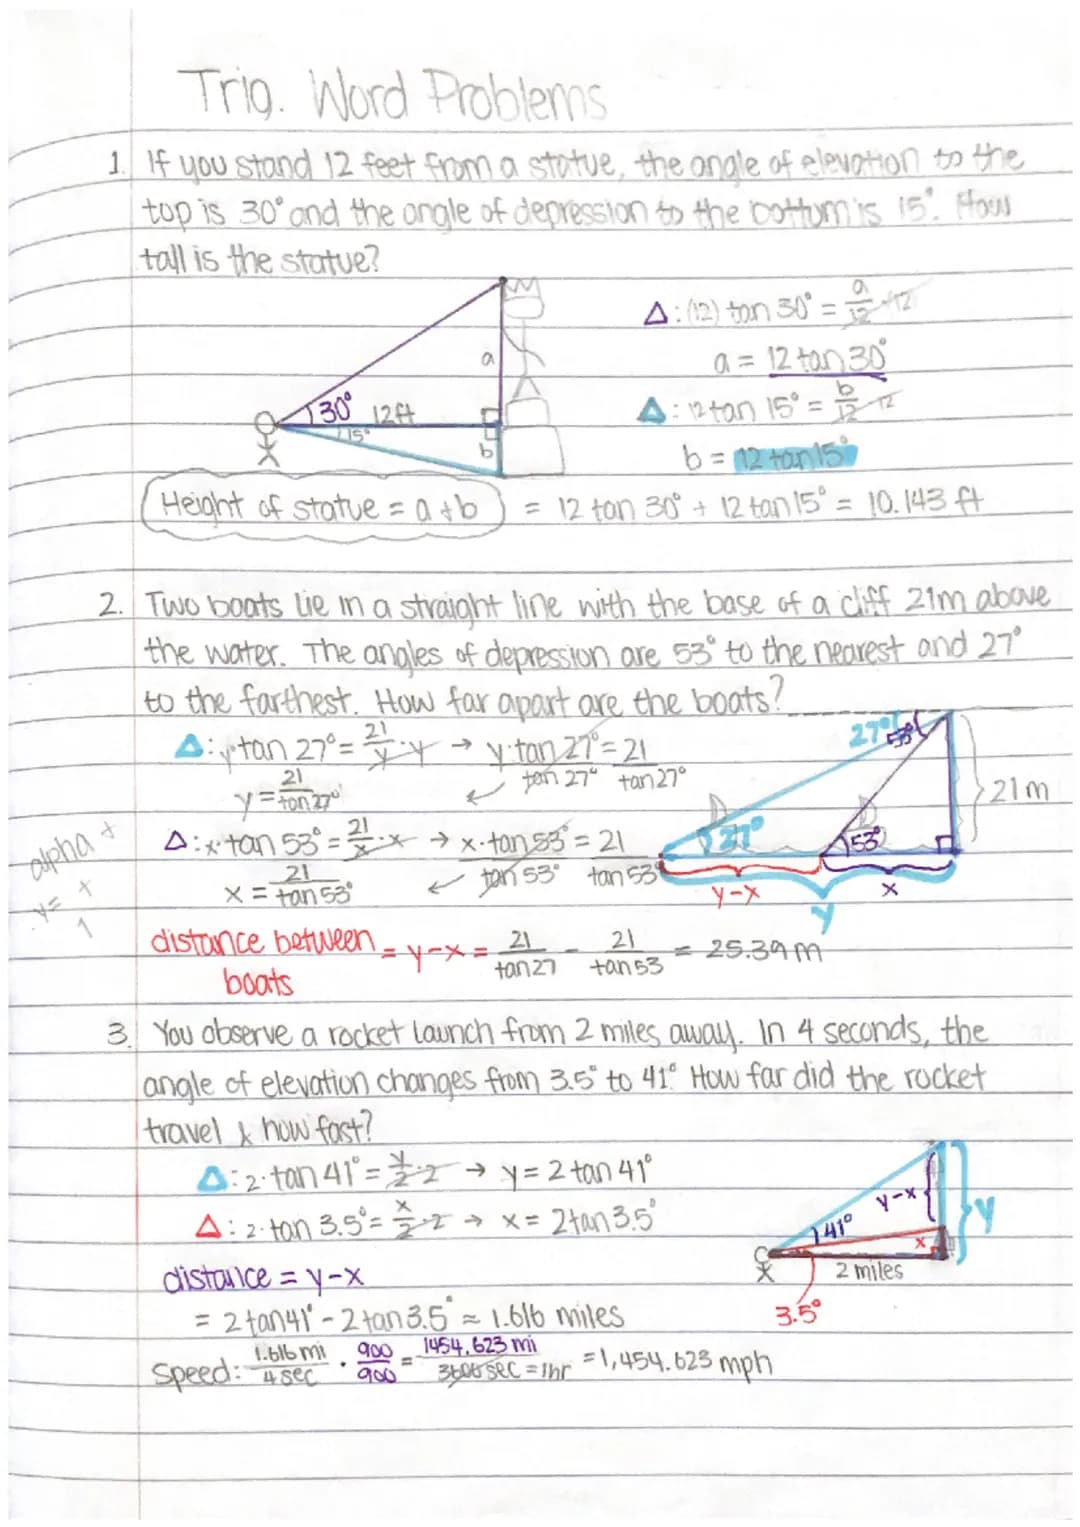 Trig. Word Problems
1. If you stand 12 feet from a statue, the angle of elevation to the
top is 30° and the angle of depression to the bottom is 15°. How
tall is the statue?
Δ: (12) tan 30° = a/12 · 12
a = 12 tan 30°
Δ: 12 tan 15° = b/12 · 12
b = 12 tan 15°
a
30° 12ft
15°
b
Height of statue = a + b = 12 tan 30° + 12 tan 15° = 10.143 ft
2. Two boats lie in a straight line with the base of a cliff 21m above
the water. The angles of depression are 53° to the nearest and 27°
to the farthest. How far apart are the boats?
Δ: y · tan 27° = 21/y · y → y · tan 27° = 21
tan 27° tan 27°
y = 21/tan 27°
Δ: x · tan 53° = 21/x · x → x · tan 53° = 21
tan 53° tan 53°
x = 21/tan 53°
27° 53°
21m
27° 53°
y-x x
y
alpha +
y = +
1
distance between boats = y-x = 21/tan27 - 21/tan53 = 25.39m
3. You observe a rocket launch from 2 miles away. In 4 seconds, the
angle of elevation changes from 3.5° to 41°. How far did the rocket
travel & how fast?
Δ: 2 · tan 41° = y/2 · 2 → y = 2 tan 41°
Δ: 2 · tan 3.5° = x/2 · 2 → x = 2tan 3.5°
y-x
y
41°
x
2 miles
3.5°
distance = y-x
= 2tan41° - 2tan3.5° ≈ 1.616 miles
Speed: 1.616 mi/4 sec · 900/900 = 1454.623 mi/3600 sec = 1hr = 1,454.623 mph